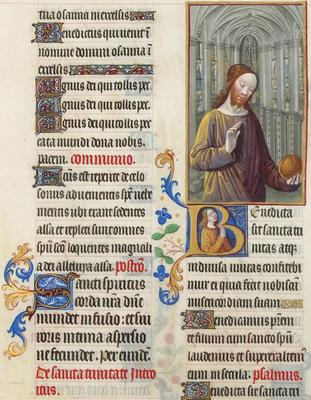 tua osanna in excelsis
Benedictus qui venit in
nomine domini osanna in
excelsis
Agnus dei qui tollis pec
Agnus dei qui tollis pec
Agnus dei qui tollis pec
cata mundi dona nobis
pacem. communio.
Factus est repente de celo
sonus advenientis spūs vehe
mentis ubi erant sedentes
alla et repleti sunt omnes
spū scō loquentes magnali
a dei alleluya alla. postcō.
Sancti spiritus
corda nrā dnē
mundet infusio: et sui
roris intima aspersio
ne fecundet. per eiusdē.
De sancta trinitate Intro
itus.
Benedicta
sit sancta tri
nitas atq
indivisa unitas confitebi
mur ei quia fecit nobiscum
misericordiam suam
Benedicamus prēm
et filium cum sancto spū
laudemus et superexaltem
eum in secula. psalmus.
Benedicta sit sancta tri